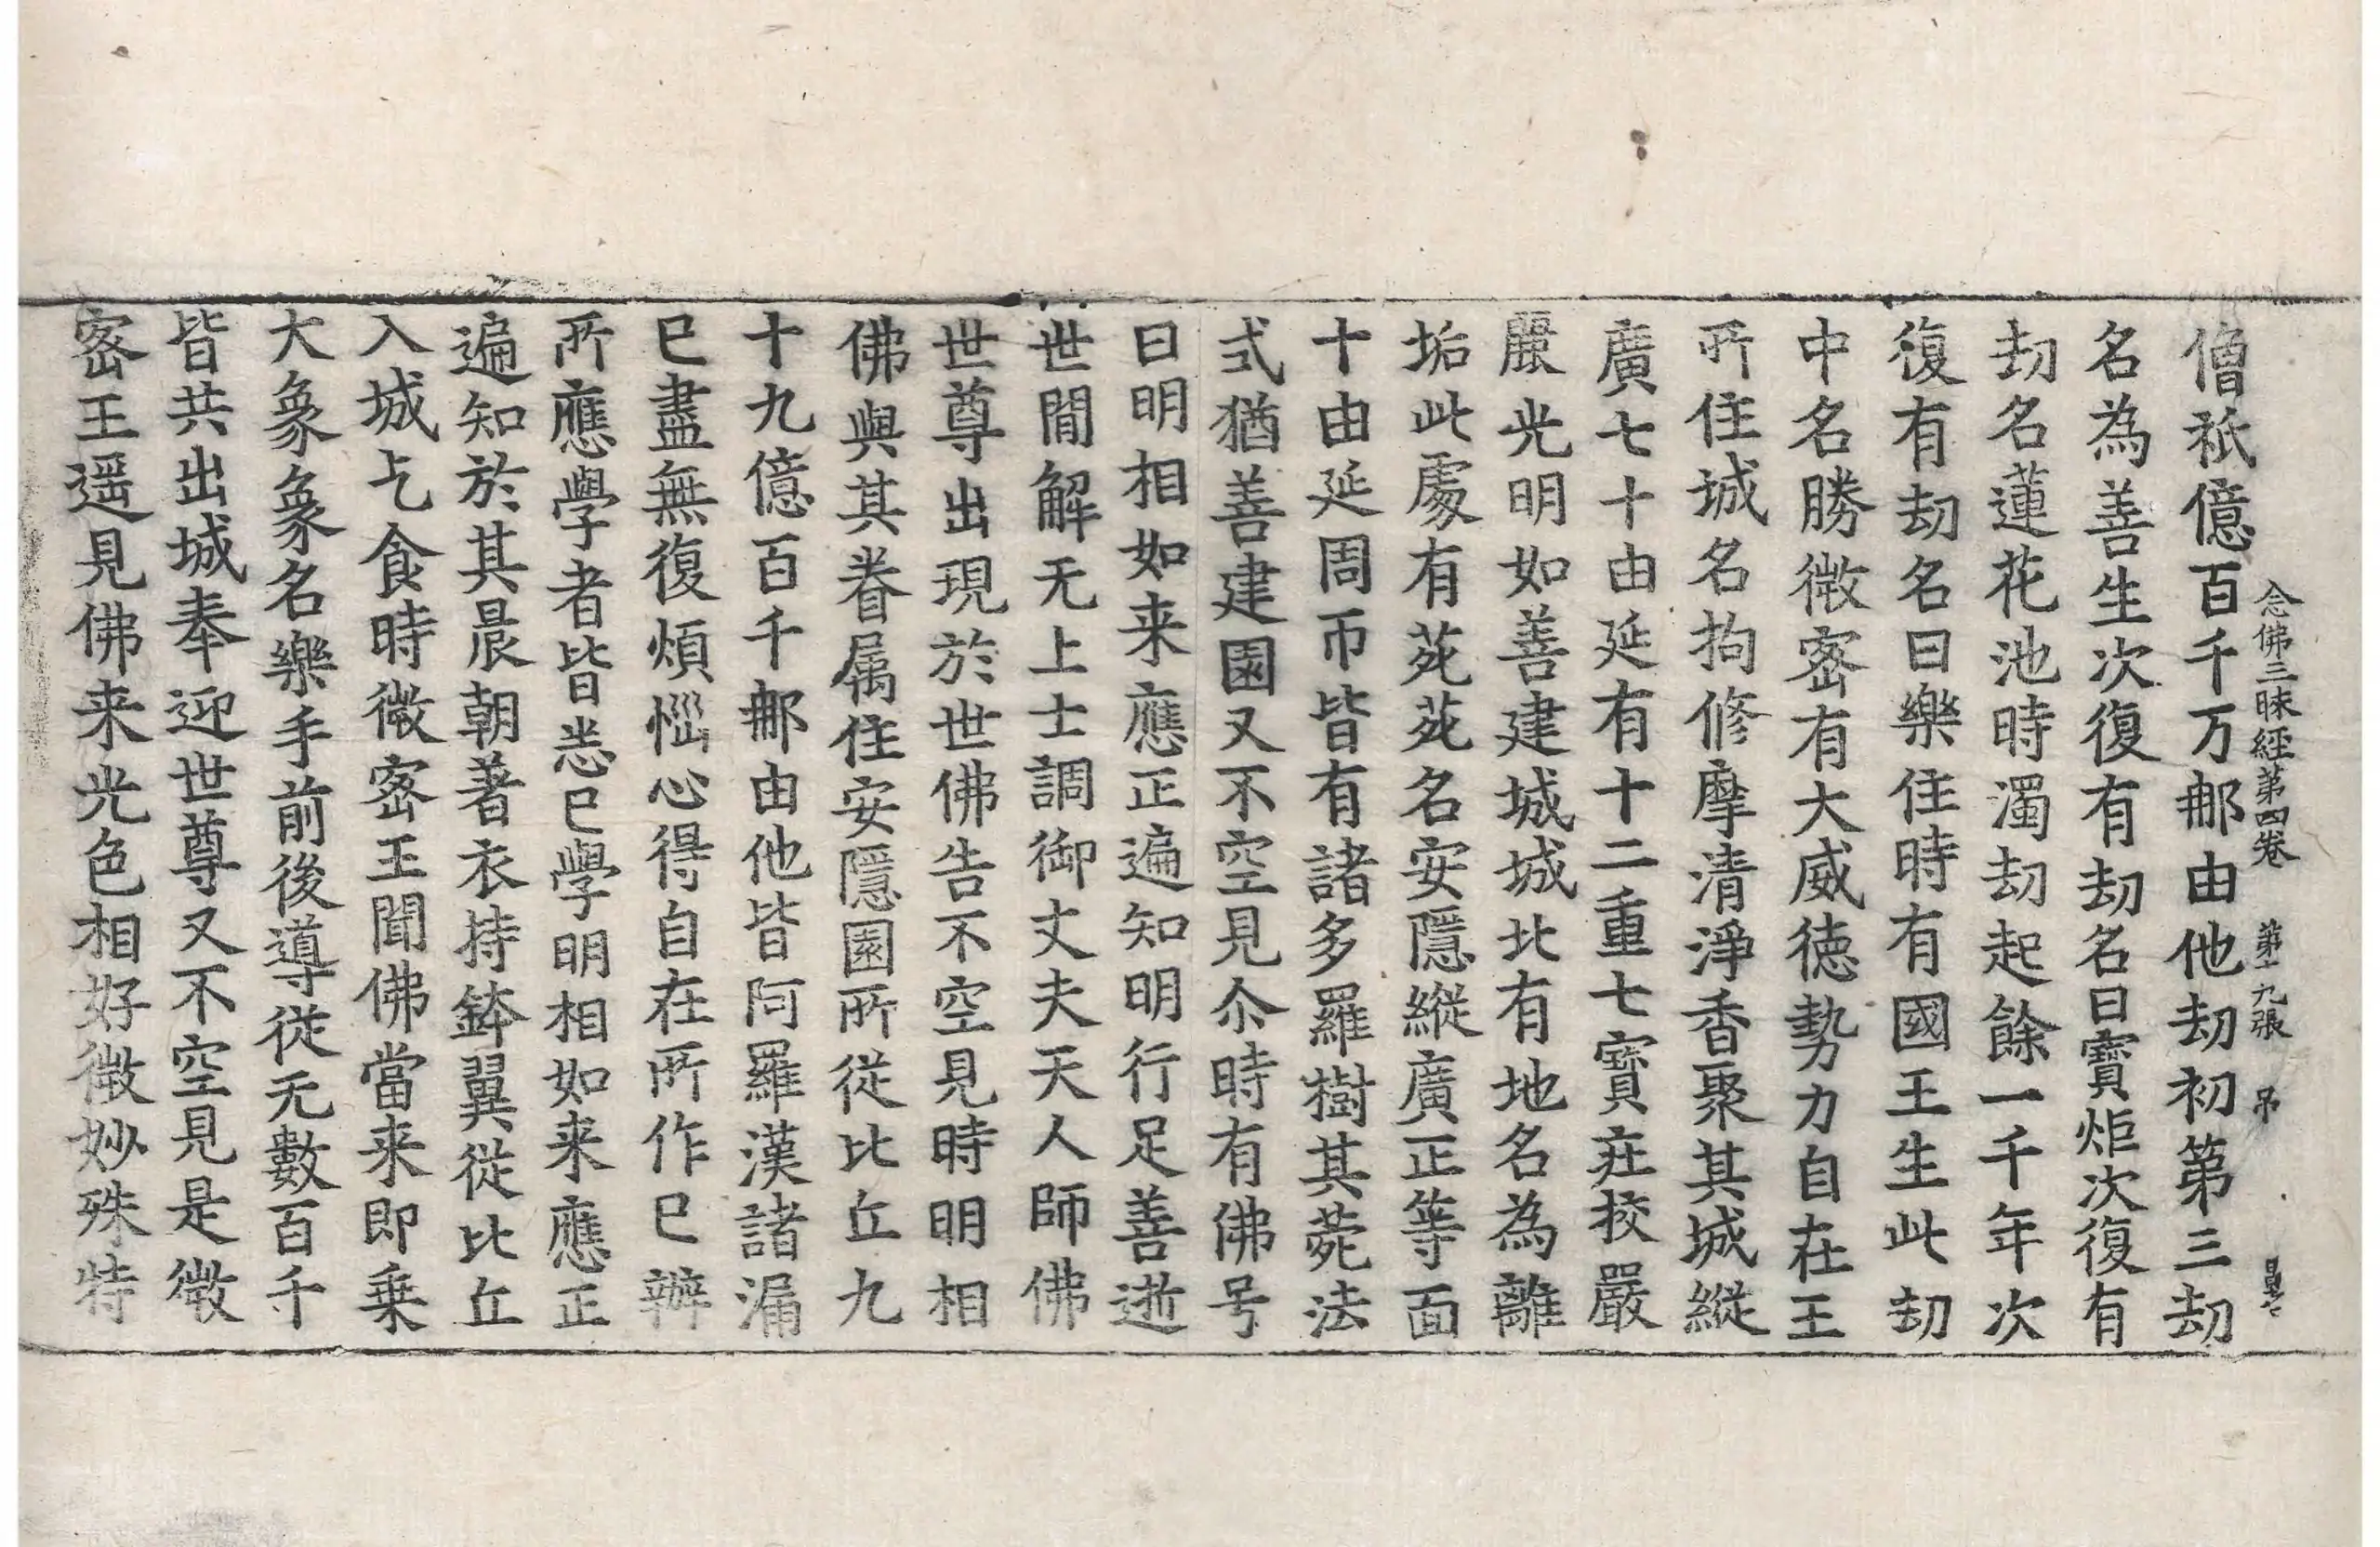 念佛三昧經第四卷 第十九張 吊
僧祇億百千万郍由他劫初第三劫
名為善生次復有劫名曰寶炬次復有
劫名蓮花池時濁劫起餘一千年次
復有劫名曰樂住時有國王生此劫
中名勝微宻有大威徳勢力自在王
所住城名拘修摩清淨香聚其城縱
廣七十由延有十二重七寶莊挍嚴
麗光明如善建城城北有地名為離
垢此處有苑苑名安隱縱廣正等面
十由延周帀皆有諸多羅樹其苑法
式猶善建園又不空見尒時有佛号
曰明相如来應正遍知明行足善逝
世間解无上士調御丈夫天人師佛
世尊出現於世佛告不空見時明相
佛與其眷属住安隱園所從比丘九
十九億百千郍由他皆阿羅漢諸漏
已盡無復煩惱心得自在所作已辦
所應學者皆悉已學明相如来應正
遍知於其晨朝著衣持鉢翼從比丘
入城乞食時微宻王聞佛當来即乗
大象象名樂手前後導從无數百千
皆共出城奉迎世尊又不空見是微
宻王遥見佛来光色相好微妙殊特